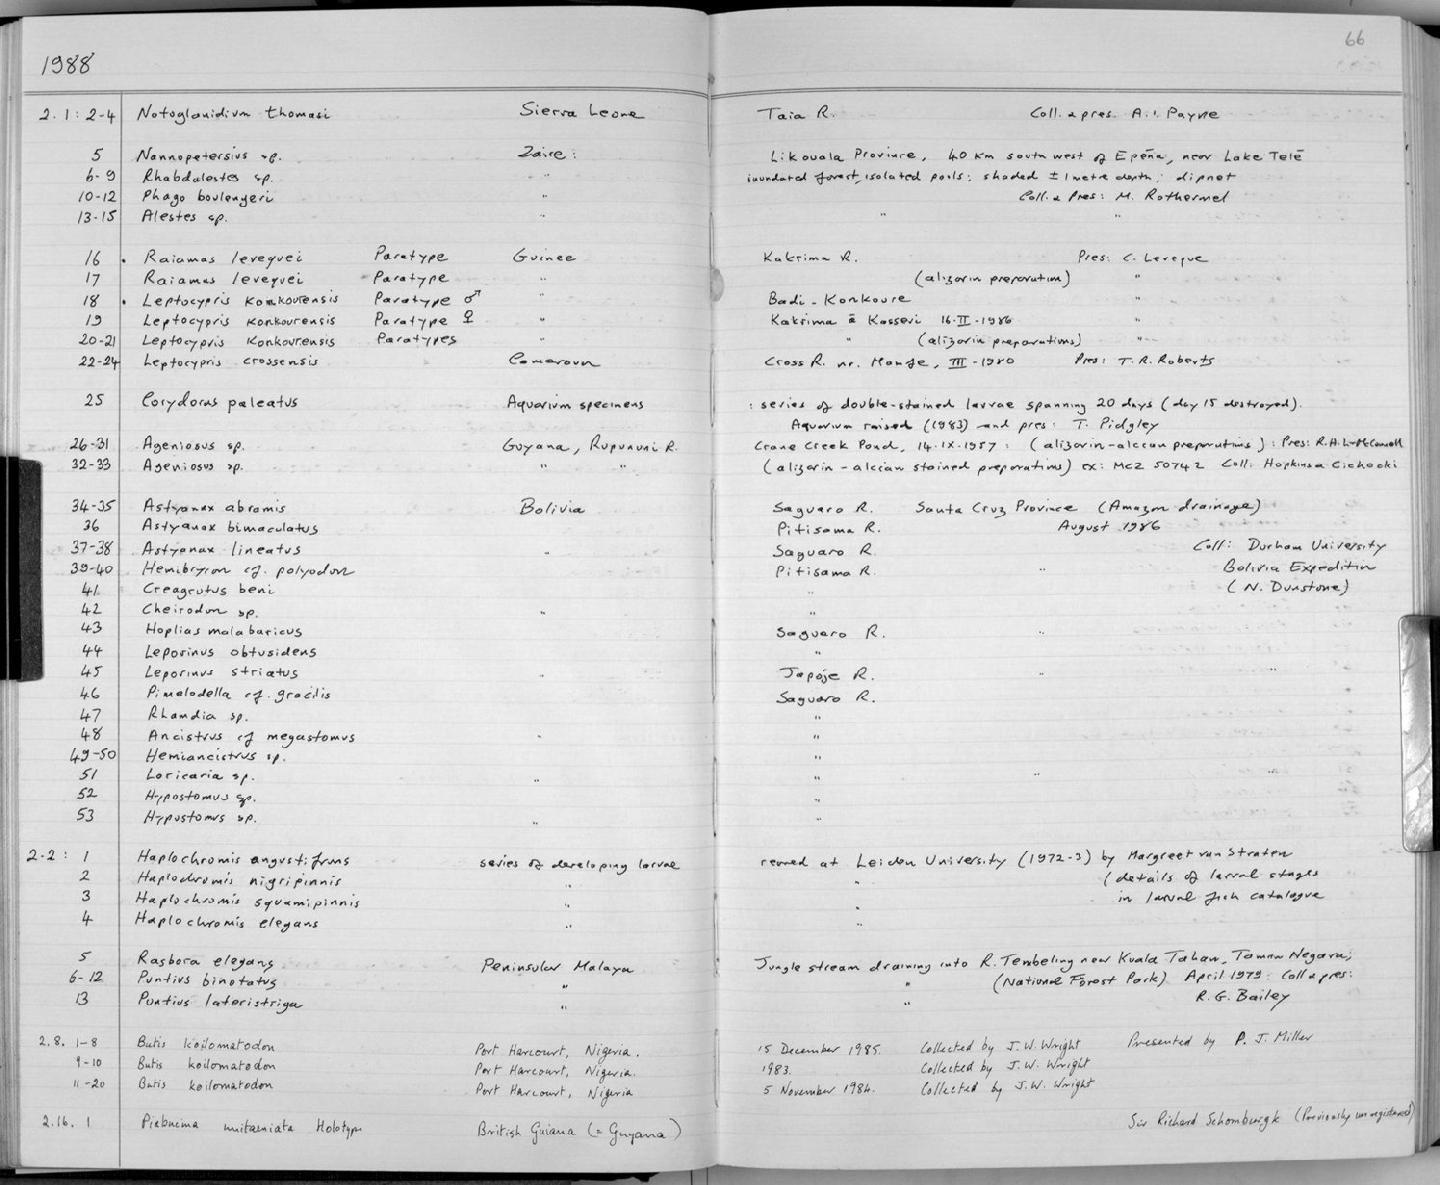 66
1988
2. 1: 2-4 Notoglanidium thomasi Sierra Leone Taia R. Coll. & pres. A.I. Payne
5 Nannopetersius sp. Zaire: Likouala Province, 40 km south west of Epéna, near Lake Telé
6-9 Rhabdalestes sp. " inundated forest, isolated pools: shaded ± 1 metre depth: dipnet
10-12 Phago boulengeri " Coll. & Pres: M. Rothermel
13-15 Alestes sp. " " "
16 . Raiamas levequei Paratype Guinee Kakrima R. Pres: C. Leveque
17 Raiamas levequei Paratype " (alizarin preparation) "
18 . Leptocypris konkourensis Paratype ♂ " Badi - Konkoure "
19 Leptocypris konkourensis Paratype ♀ " Kakrima à Kasseri 16-II-1986 "
20-21 Leptocypris konkourensis Paratypes " " (alizarin preparations) "
22-24 Leptocypris crossensis Cameroun Cross R. nr. Mamfe, III-1980 Pres: T. R. Roberts
25 Corydoras paleatus Aquarium specimens : series of double-stained larvae spanning 20 days (day 15 destroyed).
Aquarium raised (1983) and pres: T. Pidgley
26-31 Ageniosus sp. Guyana, Rupununi R. Crane Creek Pond, 14-IX-1957: (alizarin-alcian preparations): Pres: R.H.L-McConnell
32-33 Ageniosus sp. " " (alizarin-alcian stained preparations) ex: MCZ 50742 Coll: Hopkins & Cichocki
34-35 Astyanax abramis Bolivia Saguaro R. Santa Cruz Province (Amazon drainage)
36 Astyanax bimaculatus Pitisama R. August 1986
37-38 Astyanax lineatus " Saguaro R. Coll: Durham University
39-40 Hemibrycon cf. polyodon Pitisama R. " Bolivia Expedition
41 Creagrutus beni " (N. Dunstone)
42 Cheirodon sp. " "
43 Hoplias malabaricus Saguaro R. "
44 Leporinus obtusidens "
45 Leporinus striatus " Japoje R. " "
46 Pimelodella cf. gracilis Saguaro R.
47 Rhamdia sp. "
48 Ancistrus cf megastomus " "
49-50 Hemiancistrus sp. "
51 Loricaria sp. " " " "
52 Hypostomus sp. "
53 Hypostomus sp. " "
2-2: 1 Haplochromis angustifrons series of developing larvae reared at Leiden University (1972-3) by Margreet van Straten
2 Haplochromis nigripinnis " " (details of larval stages
3 Haplochromis squamipinnis " " in larval fish catalogue
4 Haplochromis elegans " "
5 Rasbora elegans Peninsular Malaya Jungle stream draining into R. Tembeling near Kuala Tahan, Taman Negara;
6-12 Puntius binotatus " " (National Forest Park) April 1979. Coll & pres:
13 Puntius lateristriga " " R.G. Bailey
2.8. 1-8 Butis koilomatodon Port Harcourt, Nigeria. 15 December 1985. Collected by J.W. Wright Presented by P. J. Miller
9-10 Butis koilomatodon Port Harcourt, Nigeria. 1983. Collected by J.W. Wright
11-20 Butis koilomatodon Port Harcourt, Nigeria 5 November 1984. Collected by J.W. Wright
2.16. 1 Piabucina unitaeniata Holotype British Guiana (= Guyana) Sir Richard Schomburgk (Previously unregistered)